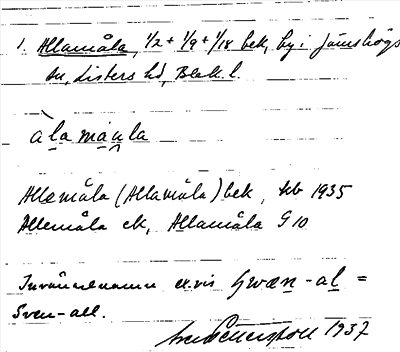 1. Allamåla, 1/2 + 1/9 + 1/18 bek, by i Jämshögs
sn, Listers hd, Blek. l.
àlamåula
Allemåla (Allamåla) bek, 1935
Allemåla ek, Allamåla G 10
Invånarenamn ex.vis Swæn-al =
Sven-all.
1937